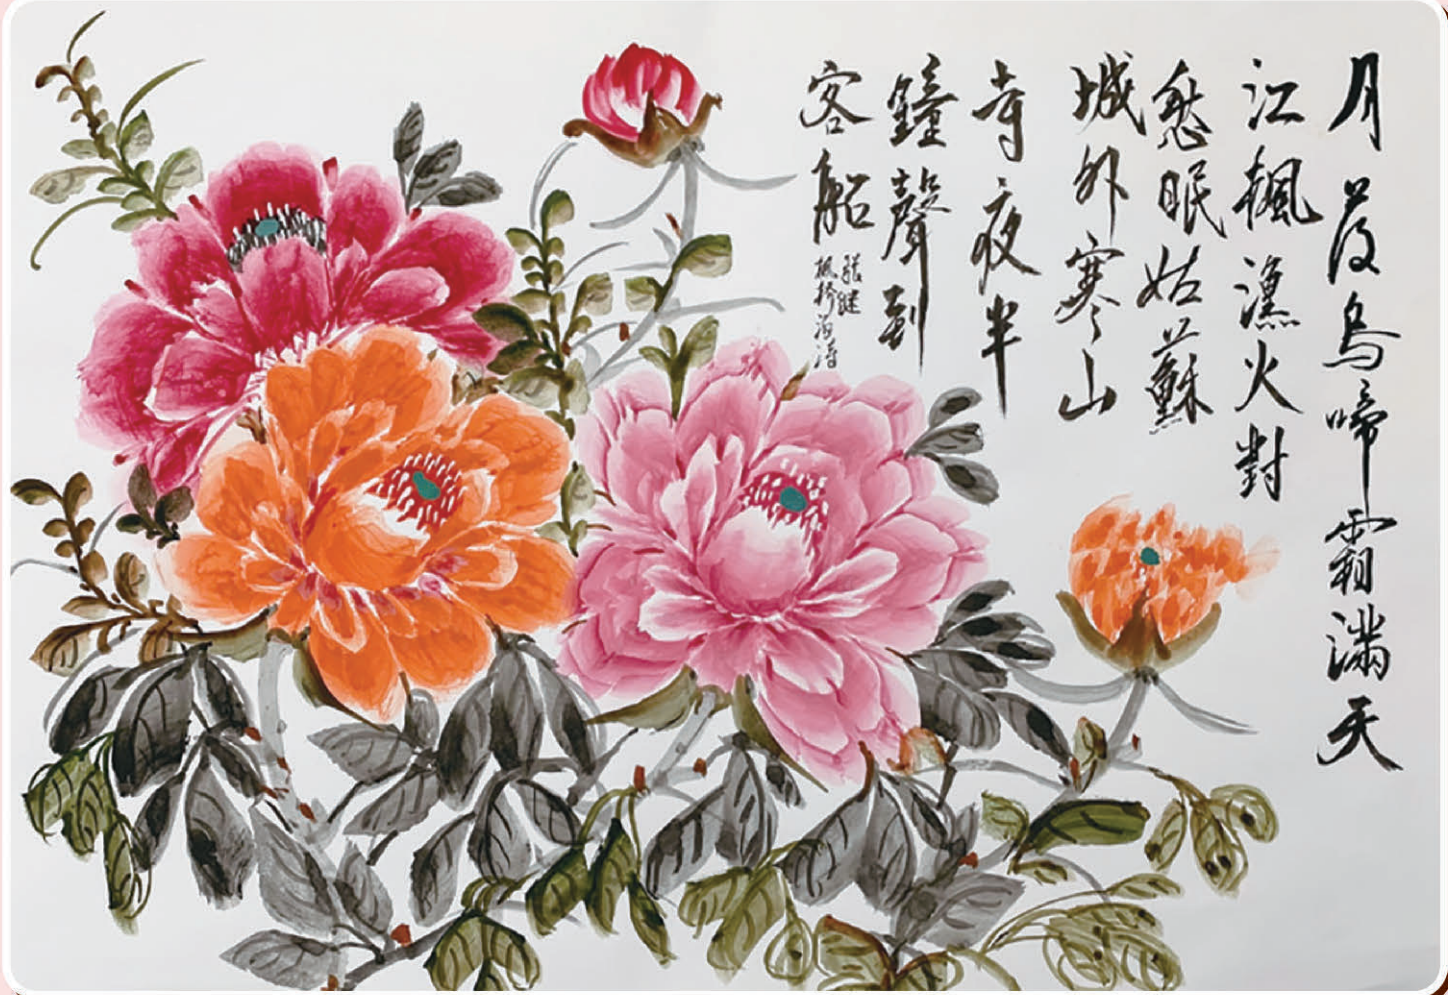 月落烏啼霜滿天
江楓漁火對
愁眠姑蘇
城外寒山
寺夜半
鐘聲到
客船
張継
楓橋泊